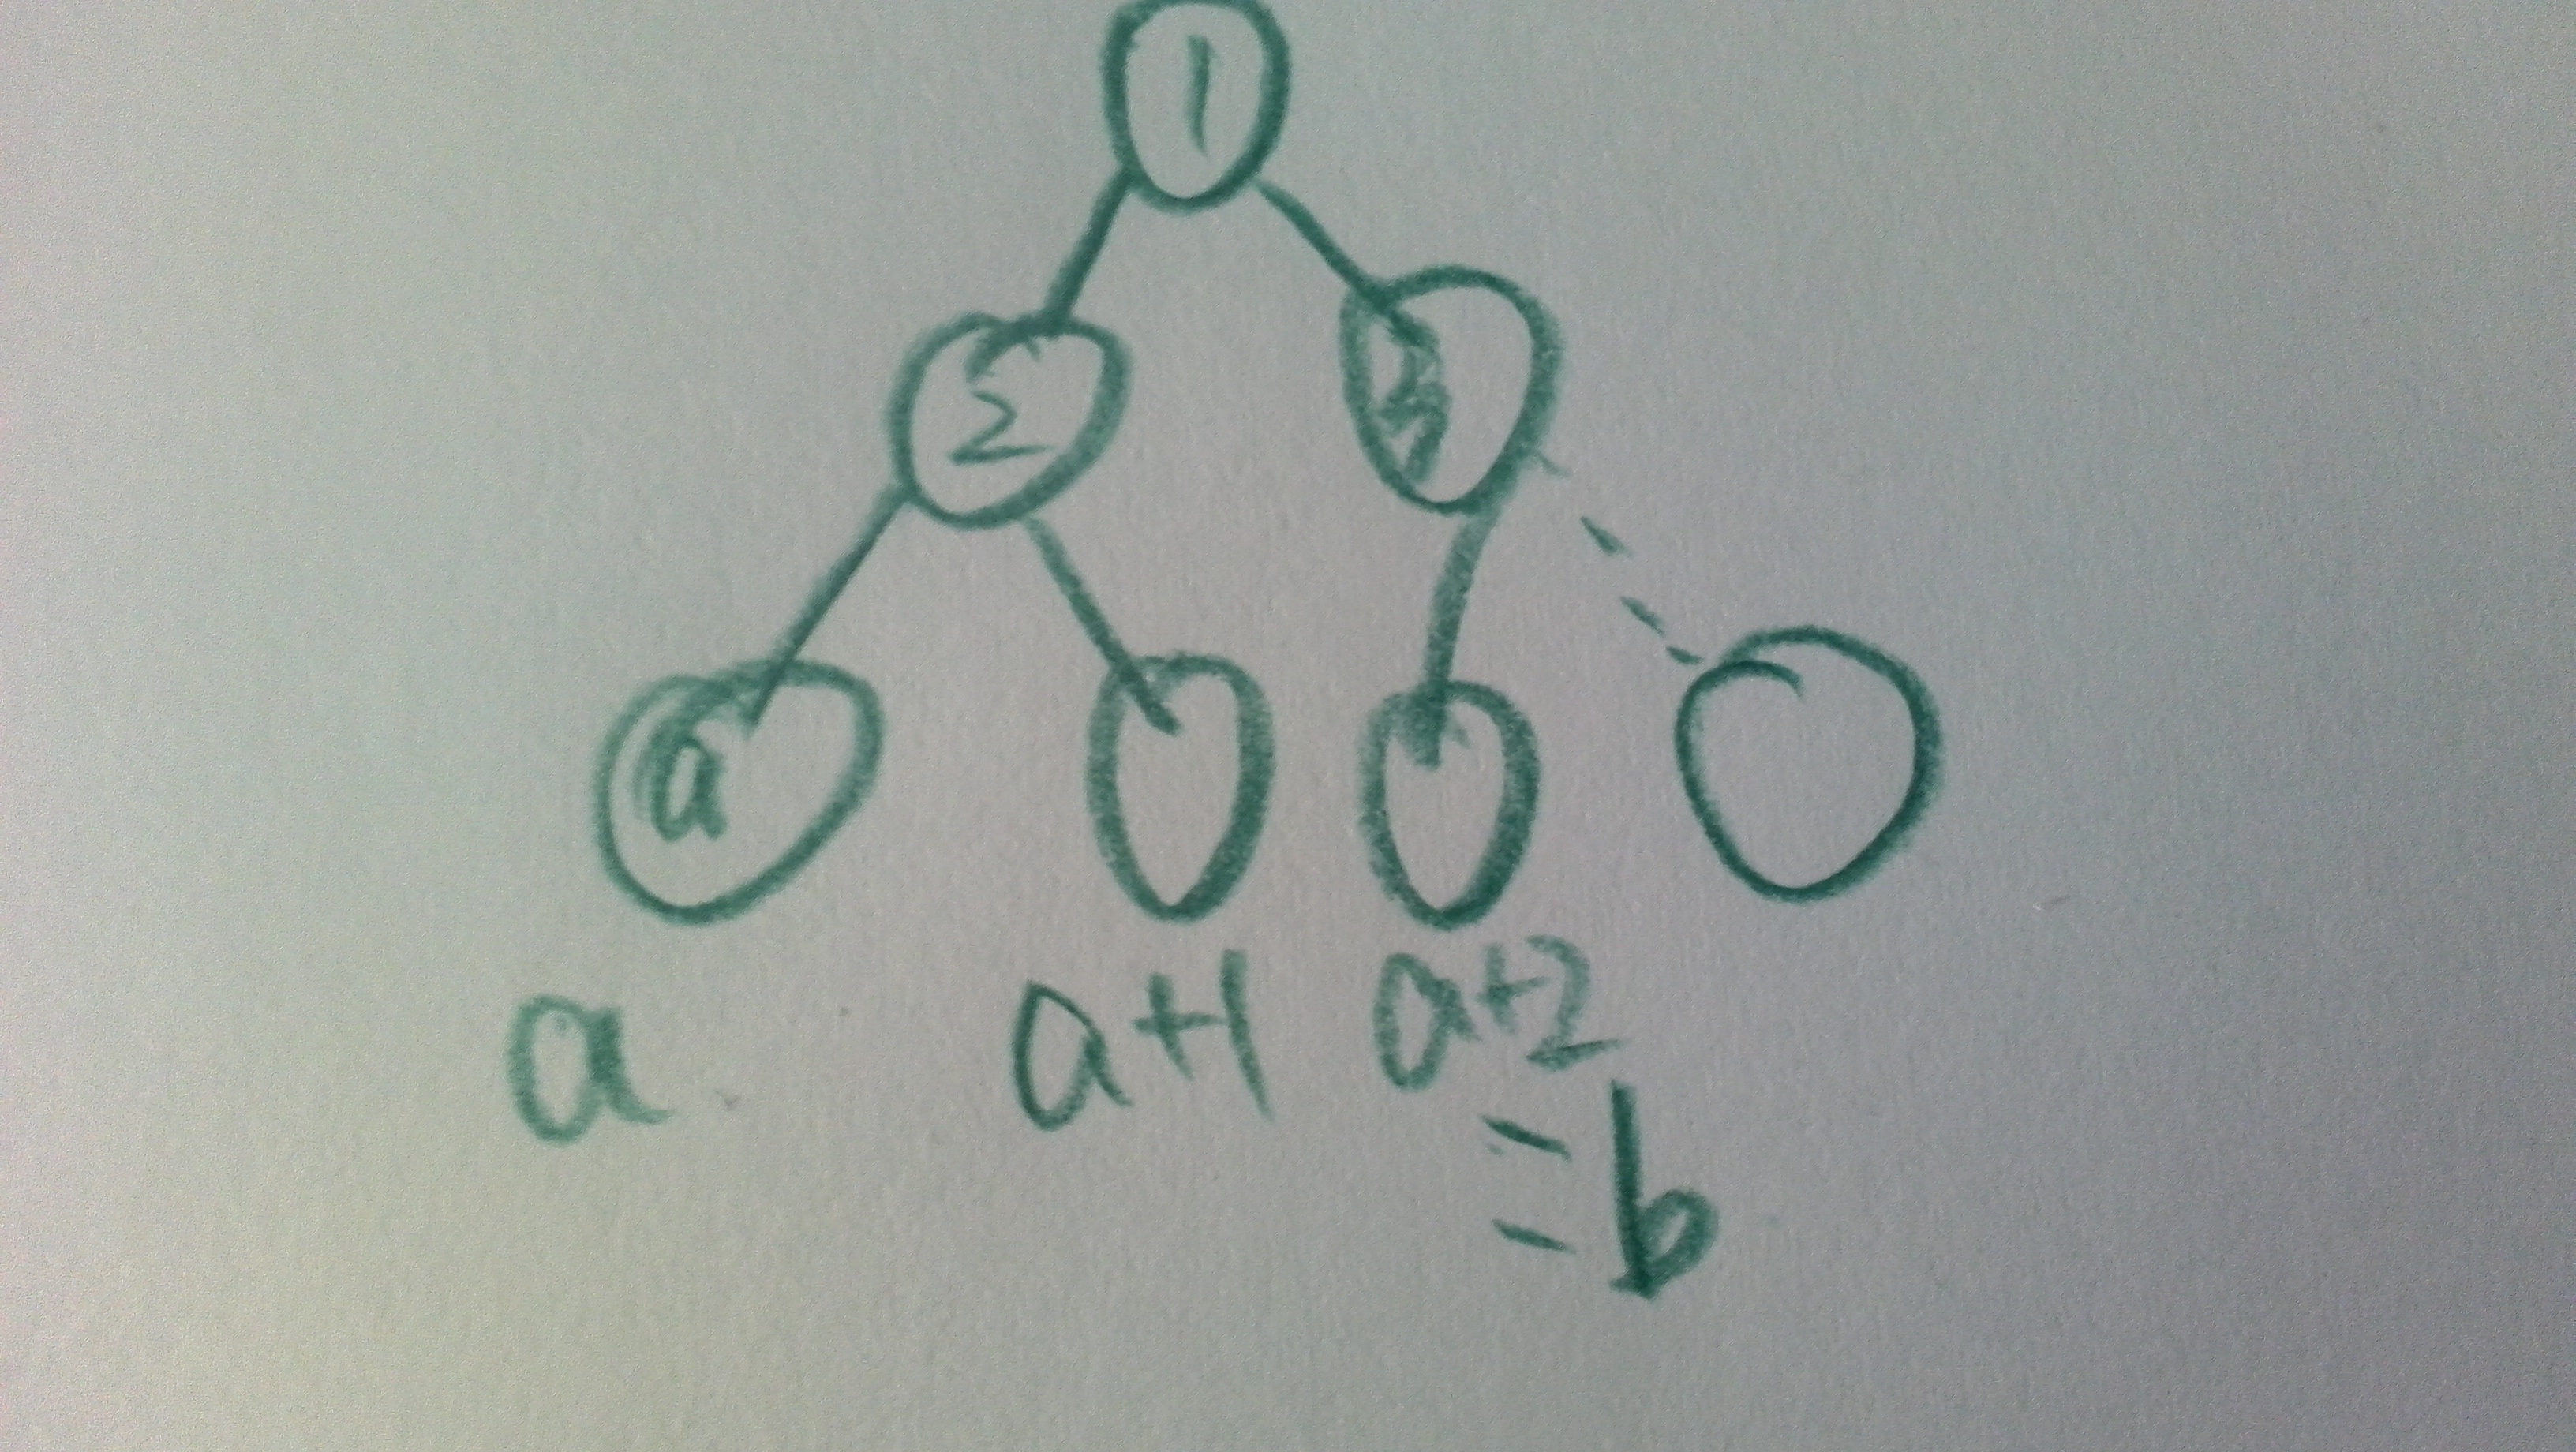 1
2 3
a
a a+1 a+2
= b